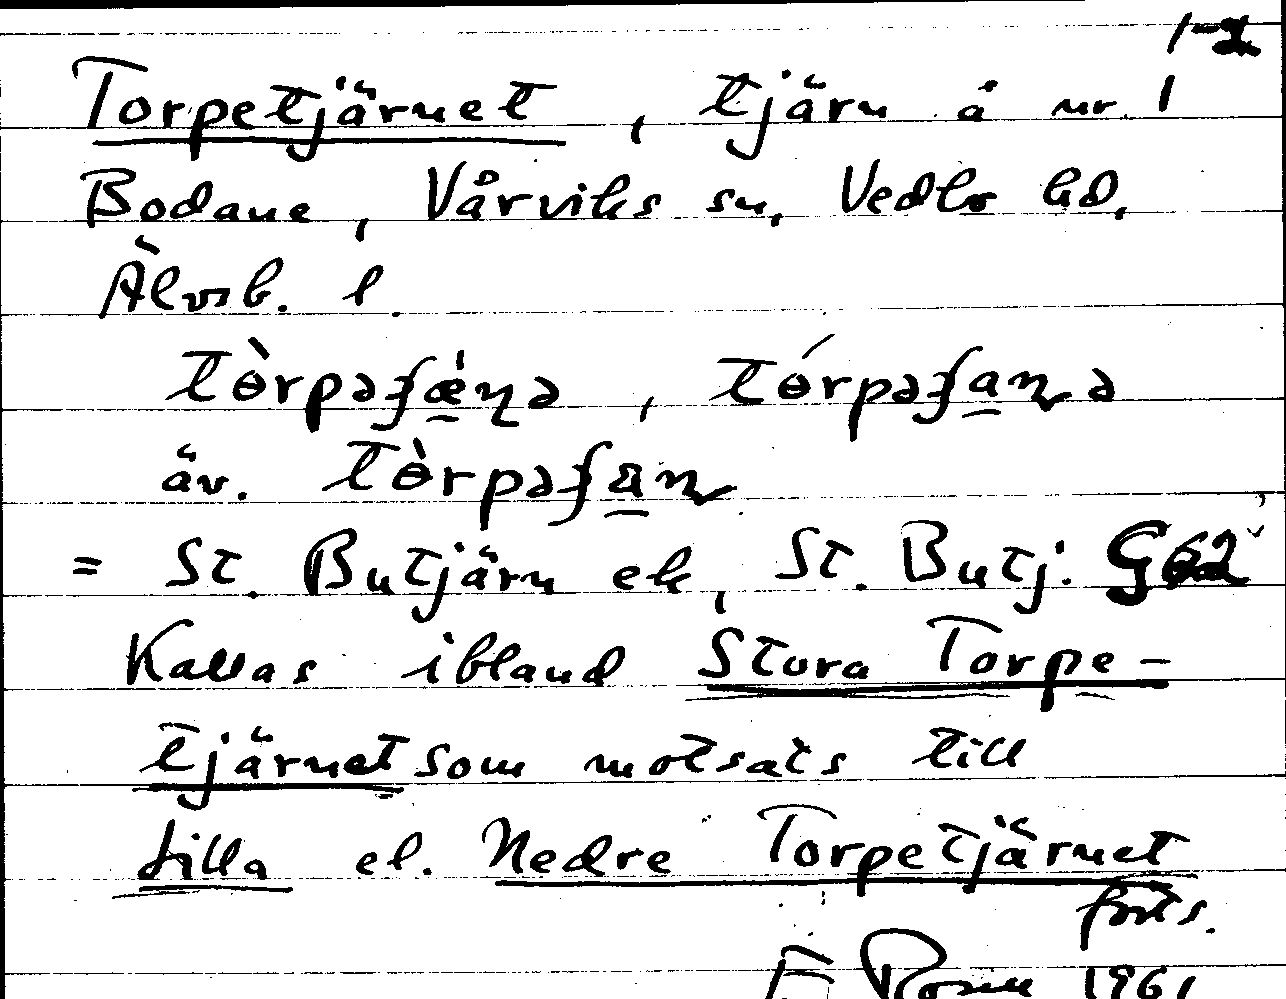 1-2
Torpetjärnet, tjärn å nr. 1
Bodane, Vårviks sn, Vedbo hd,
Älvsb. l.
tɵ̀rpəʃǽ̠ɳə, tɵ́rpəʃa̠ɳə
äv. tɵ̀rpəʃa̠ɳ
= St. Butjärn ek, St. Butj. G62
Kallas ibland Stora Torpe-
tjärnet som motsats till
Lilla el. Nedre Torpetjärnet
forts.
1961